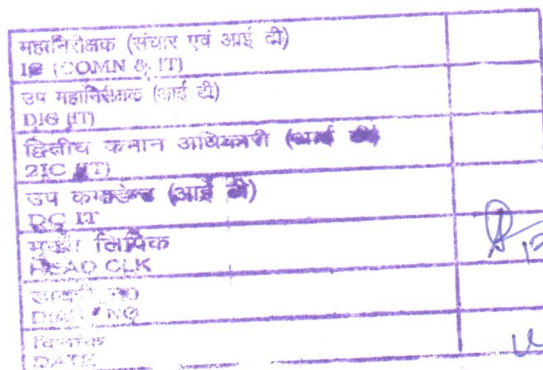 महानिरीक्षक (संचार एवं आई टी)
IG (COMN & IT)
उप महानिरीक्षक (आई टी)
DIG (IT)
द्वितीय कमान अधिकारी (आई टी)
2IC (IT)
उप कमाडेन्ट (आई टी)
DC IT
मुख्य लिपिक
HEAD CLK
NO
DIARY NO
दिनांक
DATE